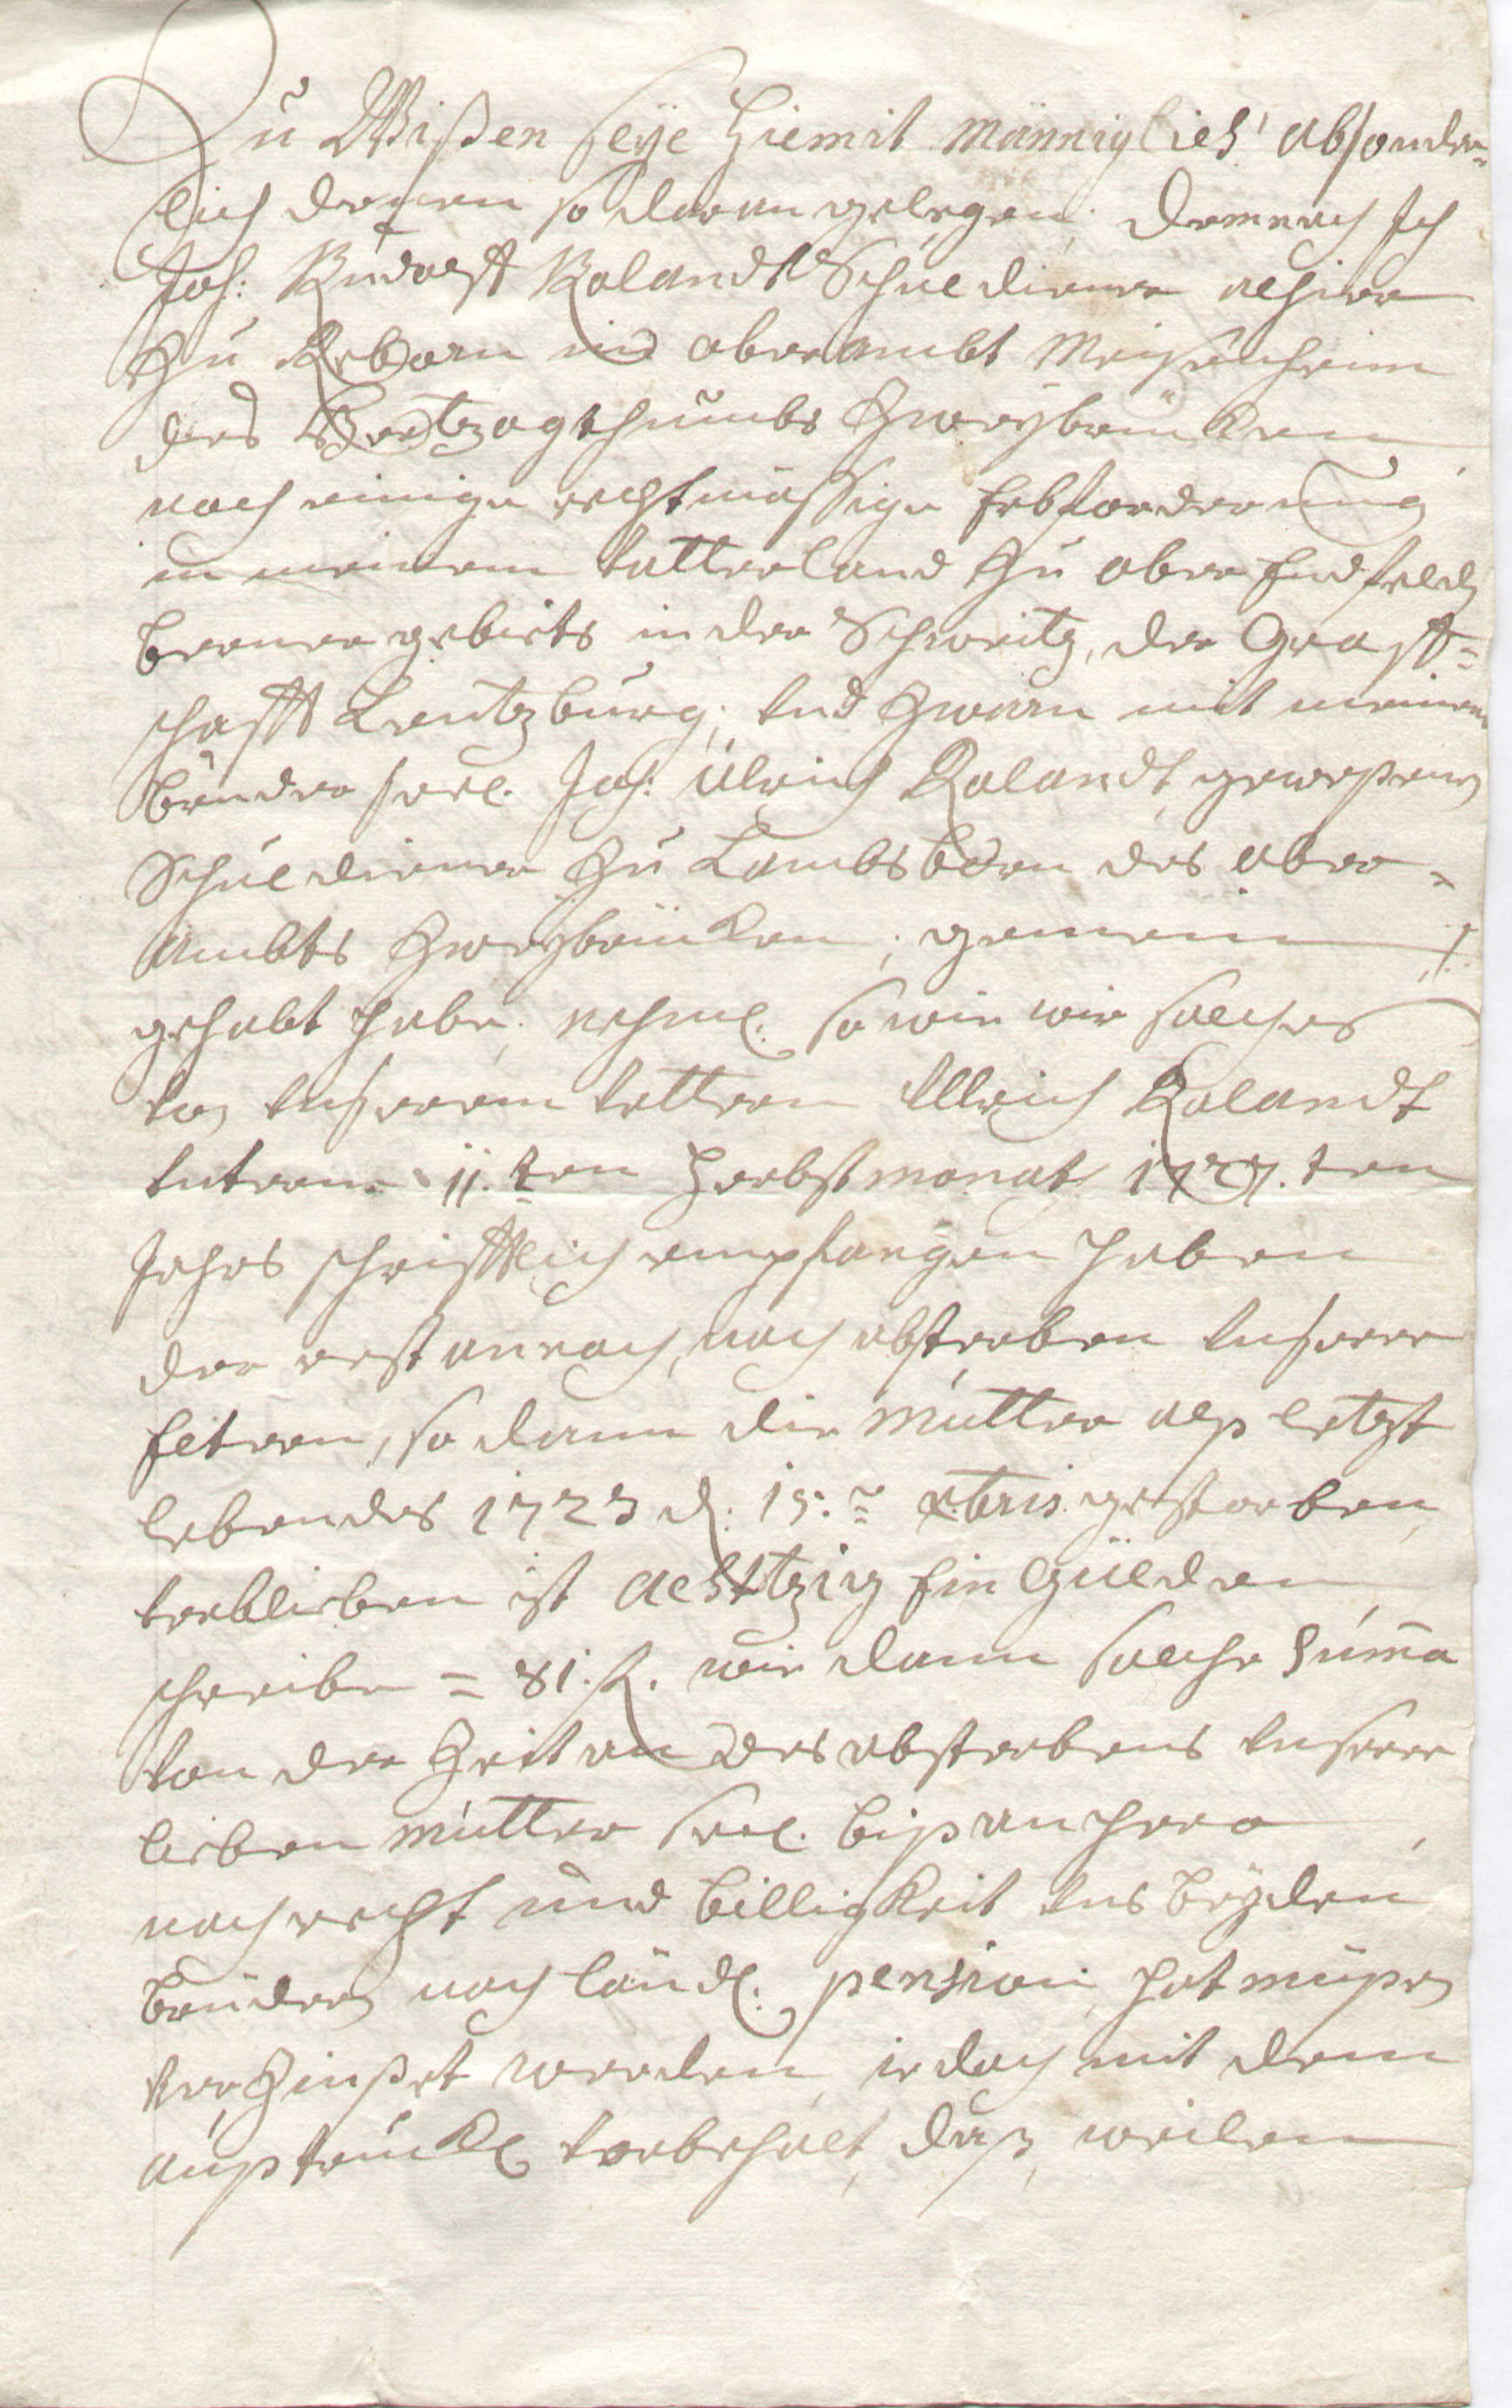 Zu Wißen seye hiemit männiglich absonder=
lich denen so daran gelegen, demnach Ich
Joh: Rudolff Rolandt Schuldiener alhier
zu Reborn im oberambt Meisenheim
des Hertzogthumbs Zweybrücken
noch einige rechtmässige Erbforderung
in meinem Vatterland zu ober Endfeld
berner gebiets in der Schweitz, der Graff=
schafft Lentzburg, und zwarn mit meinem
bruder seel. Joh: Ulrich Rolandt, gewesenen
Schuldiener zu Lambsborn des ober=
ambts Zweybrücken, gemein
gehabt habe, nehml. so wie wir solches
von unserem Vettern Ullrich Rolandt
unterm 11.ten Herbstmonat 1727.ten
Jahrs schrifftlich empfangen haben
der rest annoch, nach absterben unserer
Eltern, so dann die Mutter alß letzt
lebendes 1723 d. 15.ten xbris. gestorben,
verblieben ist achtzig Ein Gülden
schreibe = 81. fl. wie dann solche Suma
von der Zeit an des absterbens unserer
lieben Mutter seel. biß anhero
nach recht und billigkeit uns beyden
brüdern nach ländl. pension, hat müßen
verzinßet werden, iedoch mit dem
außtruckl vorbehalt, daß, weilen